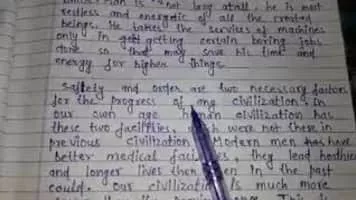 is not long at all, he is most
restless and energetic of all the created
beings. He takes the services of machines
only in getting certain boring jobs
done so that may save his time and
energy for higher things.
Safety and order are two necessary factors
for the progress of any civilization. In
our own age human civilization has
these two facilities, which were not there in
previous civilization. Modern men have
better medical facilities, they lead healthier
and longer lives than men in the past
could. Our civilization is much more